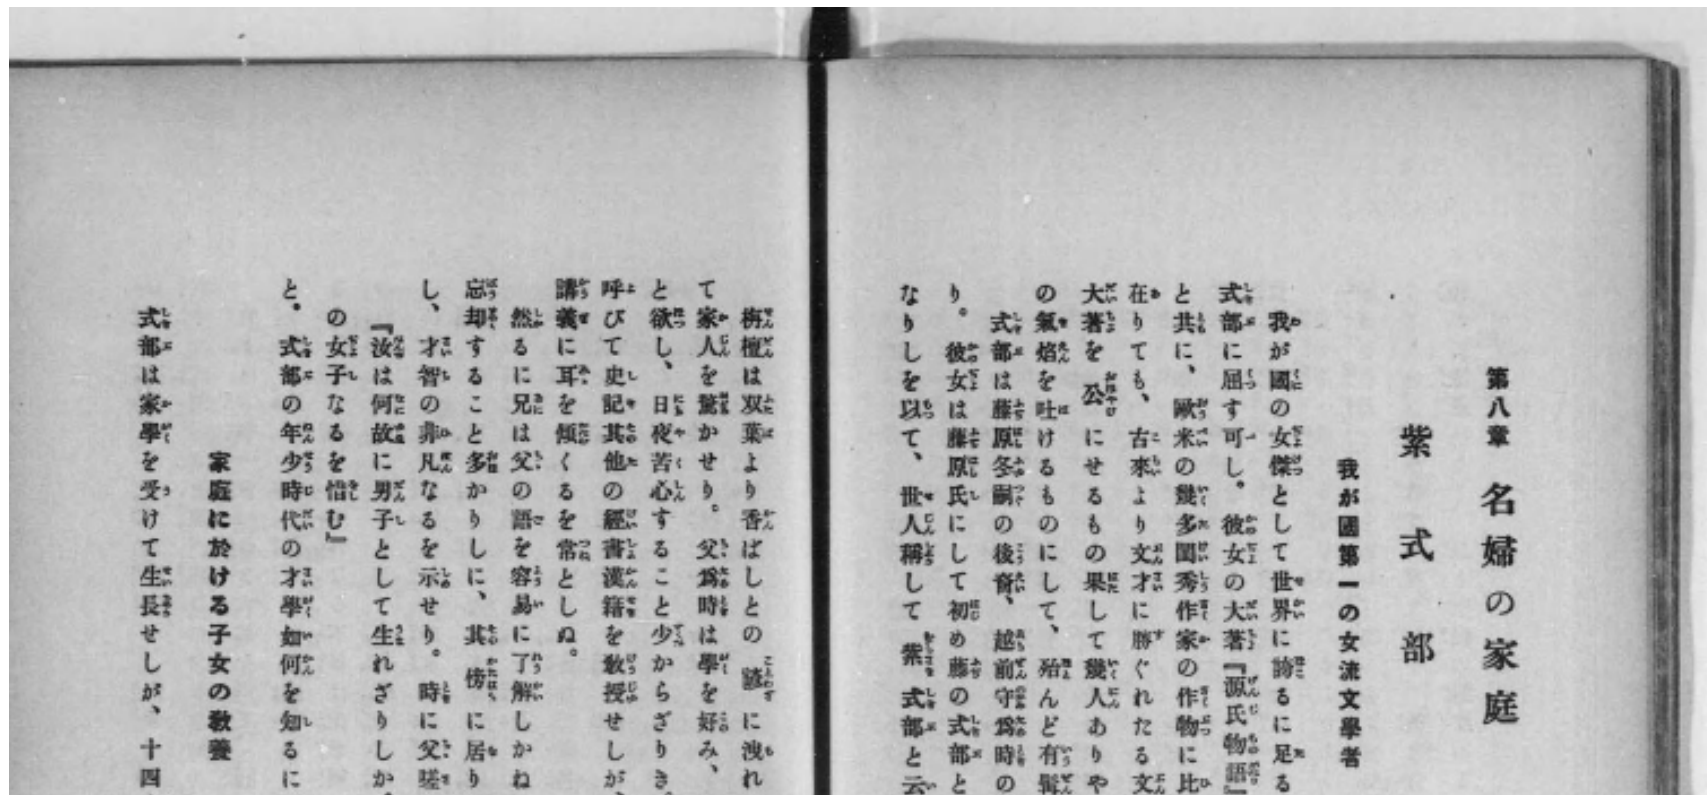 第八章　名婦の家庭
紫式部
我が國第一の女流文學者
我が國の女傑として世界に誇るに足る
式部に屈す可し。彼女の大著『源氏物語』
と共に、歐米の幾多閨秀作家の作物に比
在りても、古來より文才に勝ぐれたる文
大著を公にせるもの果して幾人ありや
の氣焰を吐けるものにして、殆んど有髯
式部は藤原冬嗣の後裔、越前守爲時の
り。彼女は藤原氏にして初め藤の式部と
なりしを以て、世人稱して紫式部と云
栴檀は双葉より香ばしとの諺に洩れ
て家人を驚かせり。父爲時は學を好み、
と欲し、日夜苦心すること少からざりき。
呼びて史記其他の經書漢籍を敎授せしが、
講義に耳を傾くるを常としぬ。
然るに兄は父の語を容易に了解しかね
忘却すること多かりしに、其傍に居り
し、才智の非凡なるを示せり。時に父嗟
『汝は何故に男子として生れざりしか、
の女子なるを惜む』
と。式部の年少時代の才學如何を知るに
家庭に於ける子女の敎養
式部は家學を受けて生長せしが、十四